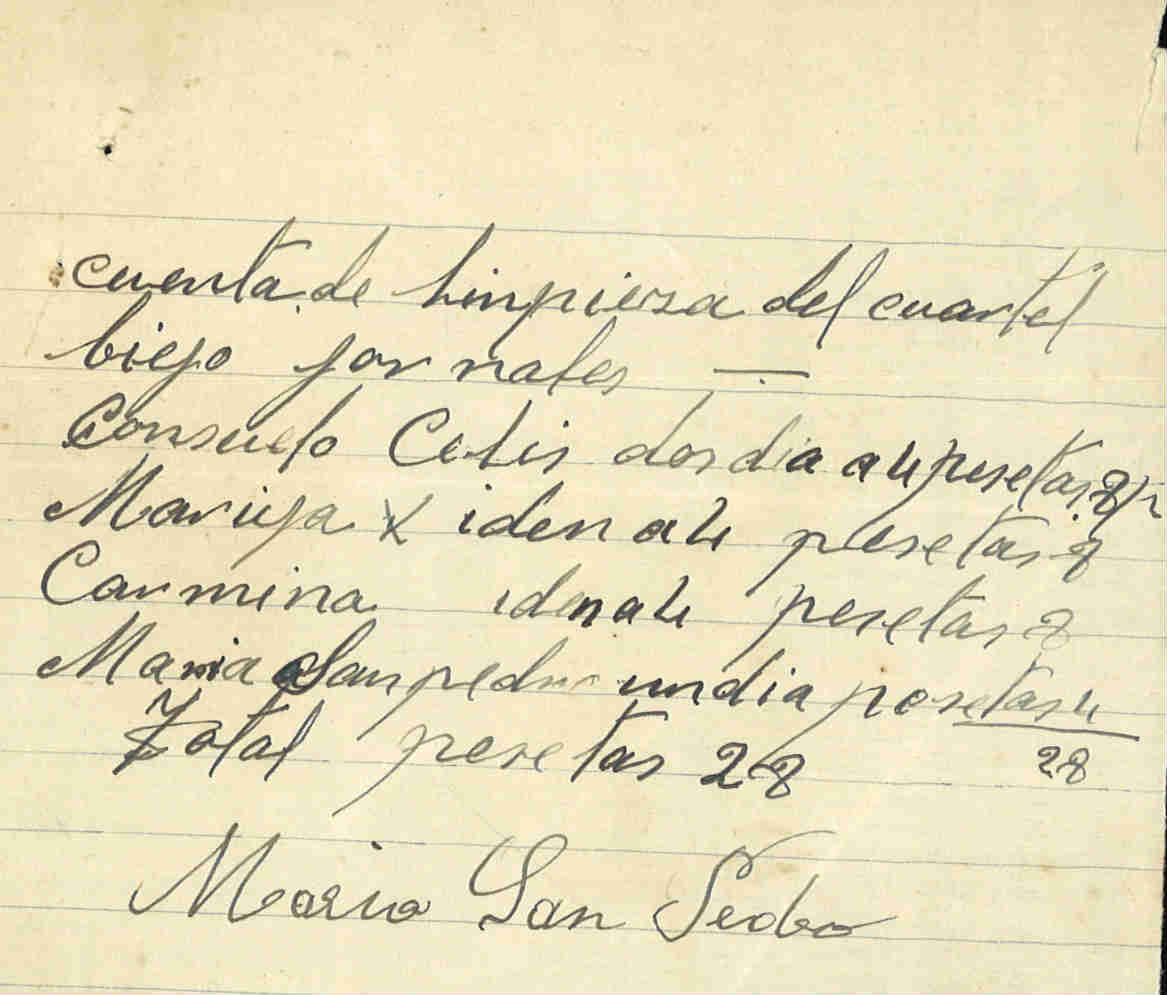 cuenta de limpieza del cuartel
biejo jornales —
Consuelo Celis dos dia a 4 pesetas 8 p
Maruja X iden a 4 pesetas 8
Carmina iden a 4 pesetas 8
Maria Sanpedro un dia pesetas 4
Total pesetas 28 28
Maria San Pedro